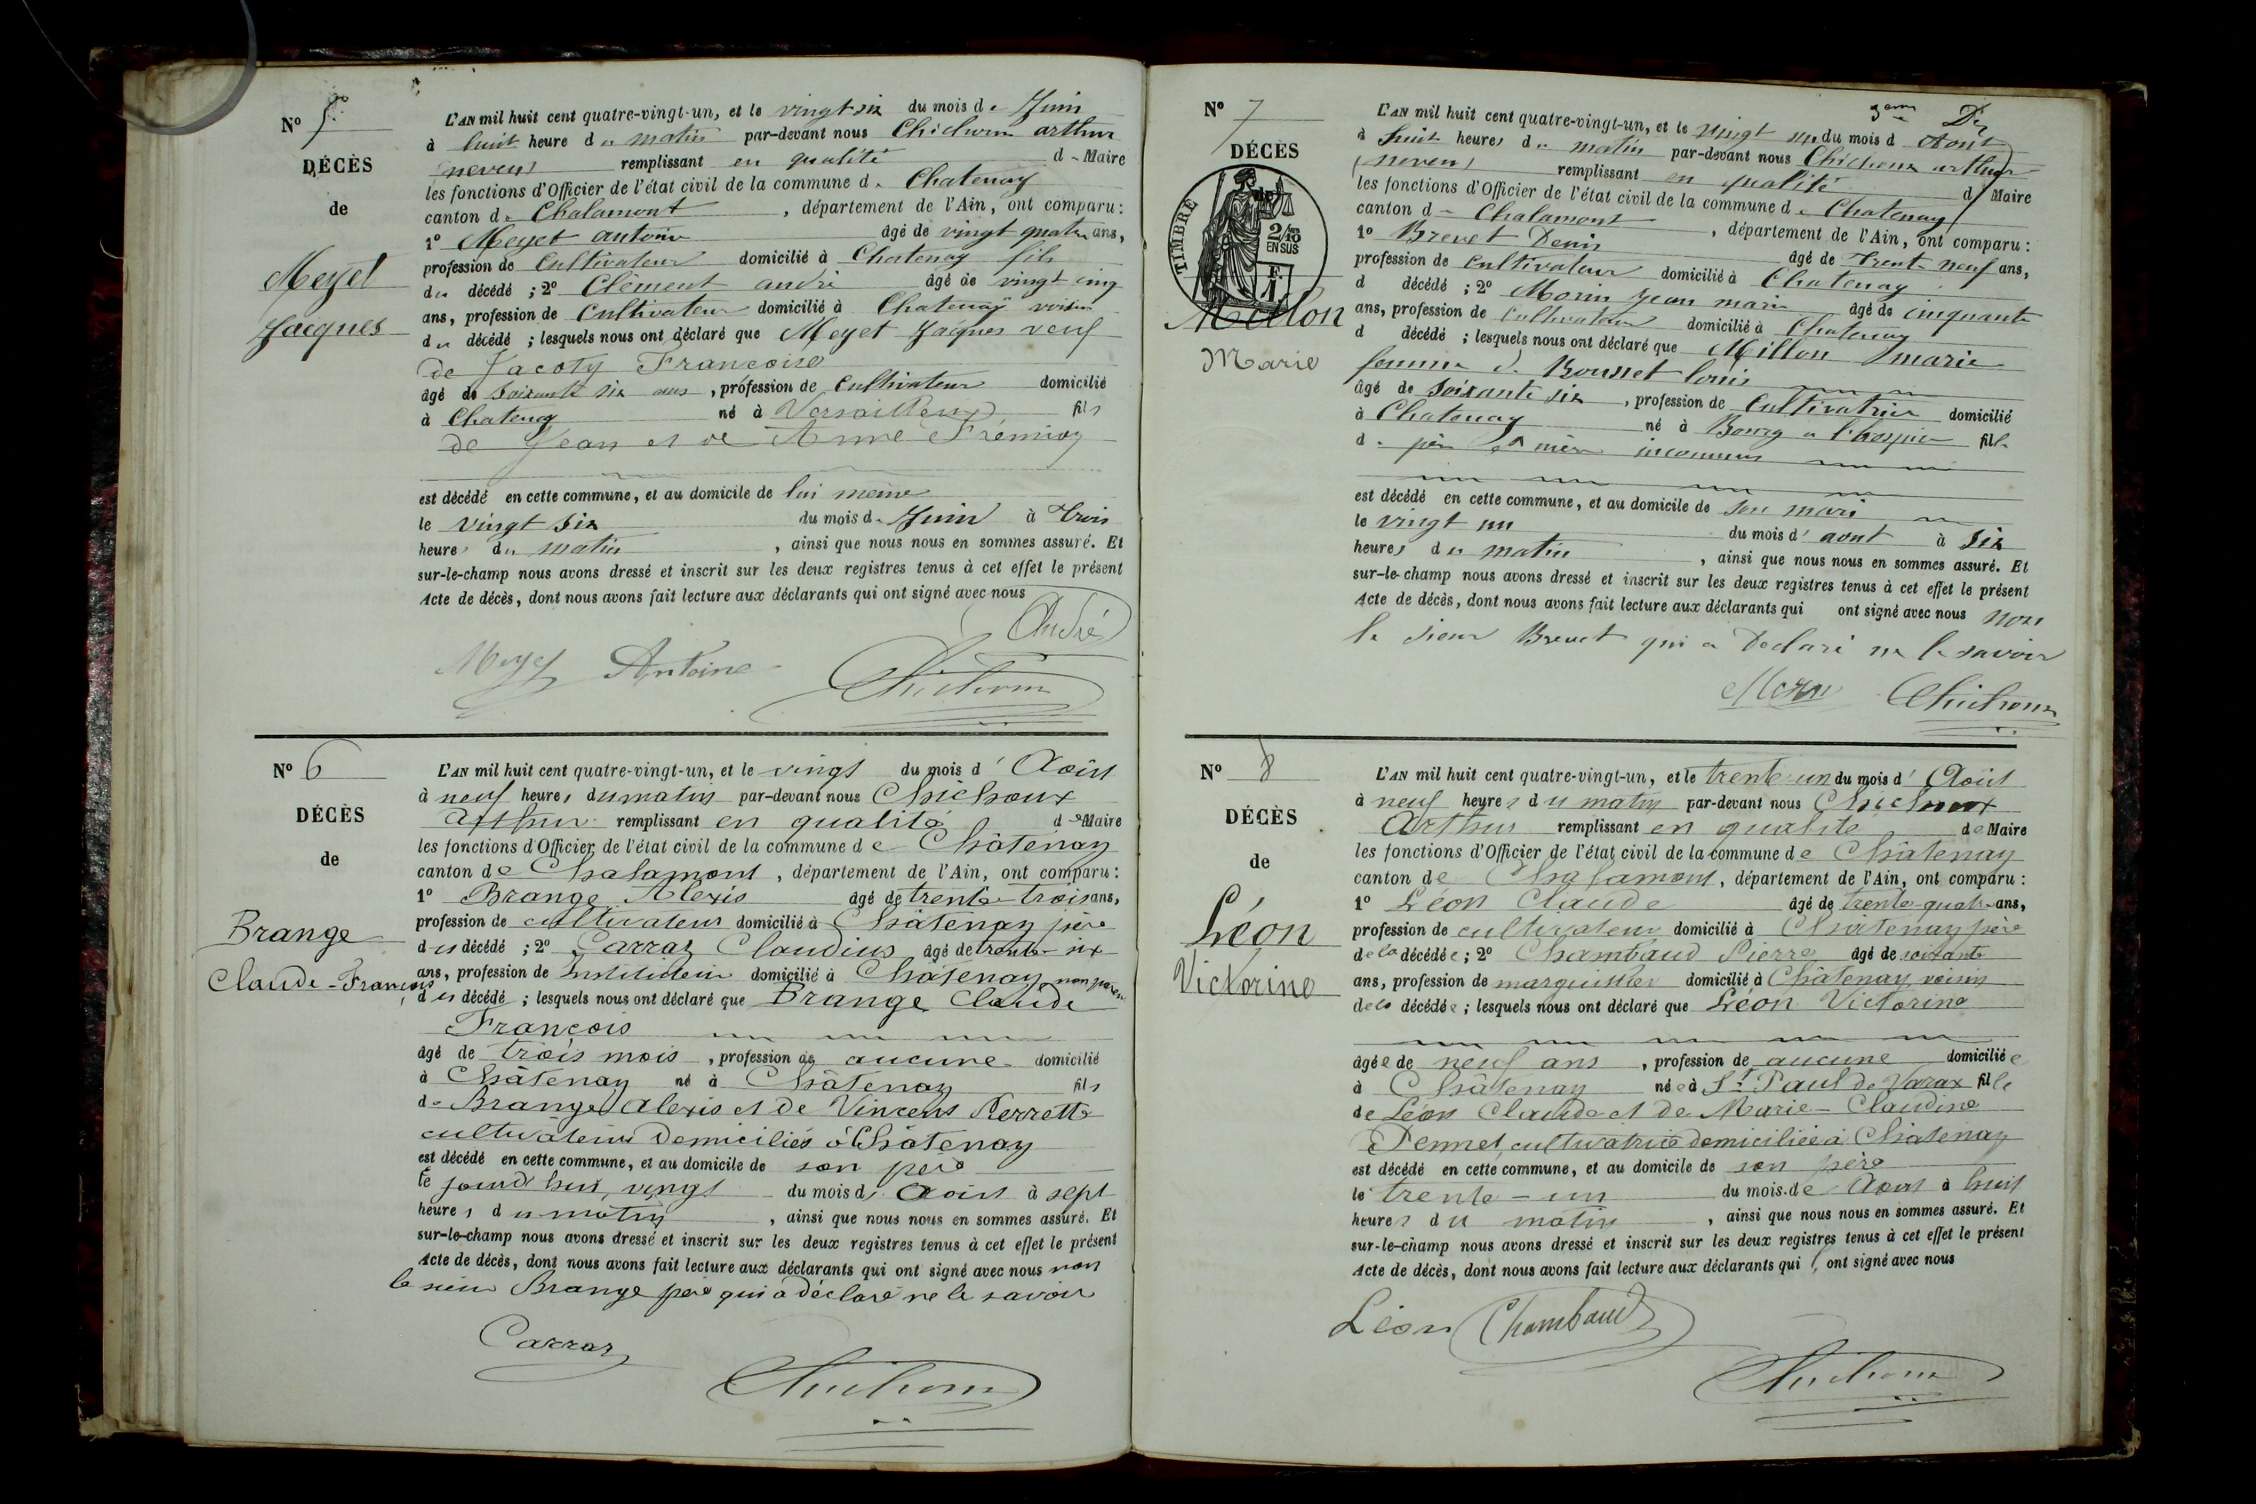 N° 5
DÉCÈS
de
Meyet
Jacques
L'AN mil huit cent quatre-vingt-un, et le vingt six du mois de Juin
à huit heure du matin par-devant nous Chichoux arthur
(neveu) remplissant en qualité de Maire
les fonctions d'Officier de l'état civil de la commune de Chatenay
canton de Chalamont, département de l'Ain, ont comparu:
1° Meyet antoine âgé de vingt quatre ans,
profession de Cultivateur domicilié à Chatenay fils
du décédé ; 2° Clément andré âgé de vingt cinq
ans, profession de Cultivateur domicilié à Chatenay voisin
du décédé ; lesquels nous ont déclaré que Meyet Jacques veuf
de Jacoty Francoise
âgé de Soixante six ans, profession de Cultivateur domicilié
à Chatenay né à Versailleux fils
de Jean et de Anne Frémioy
est décédé en cette commune, et au domicile de lui meme
le vingt six du mois de Juin à trois
heures du matin, ainsi que nous nous en sommes assuré. Et
sur-le-champ nous avons dressé et inscrit sur les deux registres tenus à cet effet le présent
Acte de décès, dont nous avons fait lecture aux déclarants qui ont signé avec nous
André
Meyet Antoine Chichoux
N° 6
DÉCÈS
de
Brange
Claude-François
L'AN mil huit cent quatre-vingt-un, et le vingt du mois d'Août
à neuf heures du matin par-devant nous Chichoux
Arthur remplissant en qualité de Maire
les fonctions d'Officier de l'état civil de la commune de Châtenay
canton de Chalamont, département de l'Ain, ont comparu:
1° Brange Alexis âgé de trente-trois ans,
profession de cultivateur domicilié à Châtenay père
du décédé ; 2° Carraz Claudius âgé de trente-six
ans, profession de Instituteur domicilié à Châtenay non parent
du décédé ; lesquels nous ont déclaré que Brange Claude
François
âgé de trois mois, profession de aucune domicilié
à Châtenay né à Châtenay fils
de Brange Alexis et de Vincent Perrette
cultivateurs domiciliés à Châtenay
est décédé en cette commune, et au domicile de son père
le jourd'hui vingt du mois d'Août à sept
heures du matin, ainsi que nous nous en sommes assuré. Et
sur-le-champ nous avons dressé et inscrit sur les deux registres tenus à cet effet le présent
Acte de décès, dont nous avons fait lecture aux déclarants qui ont signé avec nous non
le sieur Brange père qui a déclaré ne le savoir
Carraz
Chichoux
N° 7
DÉCÈS
de
TIMBRE
2/10
EN SUS
Millon
Marie
L'AN mil huit cent quatre-vingt-un, et le vingt un du mois d Aout
à huit heures du matin par-devant nous Chichoux arthur
(neveu) remplissant en qualité d Maire
les fonctions d'Officier de l'état civil de la commune de Chatenay
canton de Chalamont, département de l'Ain, ont comparu:
1° Brevet Denis âgé de trente neuf ans,
profession de cultivateur domicilié à Chatenay
d décédé ; 2° Morin Jean marie âgé de cinquante
ans, profession de Cultivateur domicilié à Chatenay
d décédé ; lesquels nous ont déclaré que Millon marie
femme de Bousset louis
âgé de soixante six, profession de Cultivatrice domicilié
à Chatenay né à Bourg a l'hospice fille
de père et mère inconnus
est décédé en cette commune, et au domicile de son mari
le vingt un du mois d'aout à six
heures du matin, ainsi que nous nous en sommes assuré. Et
sur-le-champ nous avons dressé et inscrit sur les deux registres tenus à cet effet le présent
Acte de décès, dont nous avons fait lecture aux déclarants qui ont signé avec nous non
le sieur Brevet qui a declaré ne le savoir
Morin Chichoux
N° 8
DÉCÈS
de
Léon
Victorine
L'AN mil huit cent quatre-vingt-un, et le trente-un du mois d'Août
à neuf heures du matin par-devant nous Chichoux
Arthur remplissant en qualité de Maire
les fonctions d'Officier de l'état civil de la commune de Châtenay
canton de Chalamont, département de l'Ain, ont comparu:
1° Léon Claude âgé de trente-quatre ans,
profession de cultivateur domicilié à Châtenay père
de la décédée ; 2° Chambaud Pierre âgé de soixante
ans, profession de marguillier domicilié à Châtenay, voisin
de la décédée ; lesquels nous ont déclaré que Léon Victorine
âgée de neuf ans, profession de aucune domiciliée
à Châtenay née à St Paul de Varax fille
de Léon Claude et de Marie-Claudine
Pennet, cultivatrice domiciliée à Châtenay
est décédé en cette commune, et au domicile de son père
le trente-un du mois de Août à huit
heures du matin, ainsi que nous nous en sommes assuré. Et
sur-le-champ nous avons dressé et inscrit sur les deux registres tenus à cet effet le présent
Acte de décès, dont nous avons fait lecture aux déclarants qui ont signé avec nous
Léon Chambaud
Chichoux